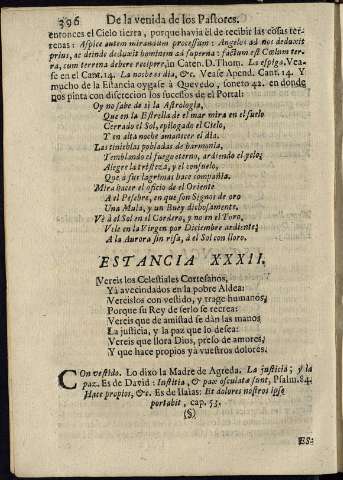 396 De la venida de los Pastores.
entonces el Cielo tierra, porque havia èl de recibir las cosas ter-
renas: Aspice autem mirandum processum: Angelos ad nos deduxit
prius, ac deinde deduxit hominem ad superna: factum est Cœlum ter-
ra, cum terrena debere recipere, in Caten. D. Thom. La espiga, Vea-
se en el Cant. 14. La noche es dia, &c. Vease Apend. Cant. 14. Y
mucho de la Estancia oygase à Quevedo, soneto 42. en donde
nos pinta con discrecion los sucessos de el Portal:
Oy no sabe de sì la Astrologia,
Que en la Estrella de el mar mira en el suelo
Cerrado el Sol, epilogado el Cielo,
Y en alta noche amanecer el dia.
Las tinieblas pobladas de harmonia,
Temblando el fuego eterno, ardiendo el yelo;
Alegre la tristeza, y el consuelo,
Que à sus lagrimas hace compañia.
Mira hacer el oficio de el Oriente
A el Pesebre, en que son Signos de oro
Una Mula, y un Buey dichosamente.
Vè à el Sol en el Cordero, y no en el Toro,
Vele en la Virgen por Diciembre ardiente;
A la Aurora sin risa, à el Sol con lloro.
ESTANCIA XXXII.
Vereis los Celestiales Cortesanos,
Yà avecindados en la pobre Aldea:
Vereislos con vestido, y trage humanos,
Porque su Rey de serlo se recrea:
Vereis que de amistad se dàn las manos
La justicia, y la paz que lo desea:
Vereis que llora Dios, preso de amores,
Y que hace propios yà vuestros dolores.
Con vestido. Lo dixo la Madre de Agreda. La justicia; y la
paz. Es de David: Iustitia, & pax osculatæ sunt, Psalm. 84.
Hace propios, &c. Es de Isaias: Et dolores nostros ipse
portabit, cap. 53.
(§)
ES-